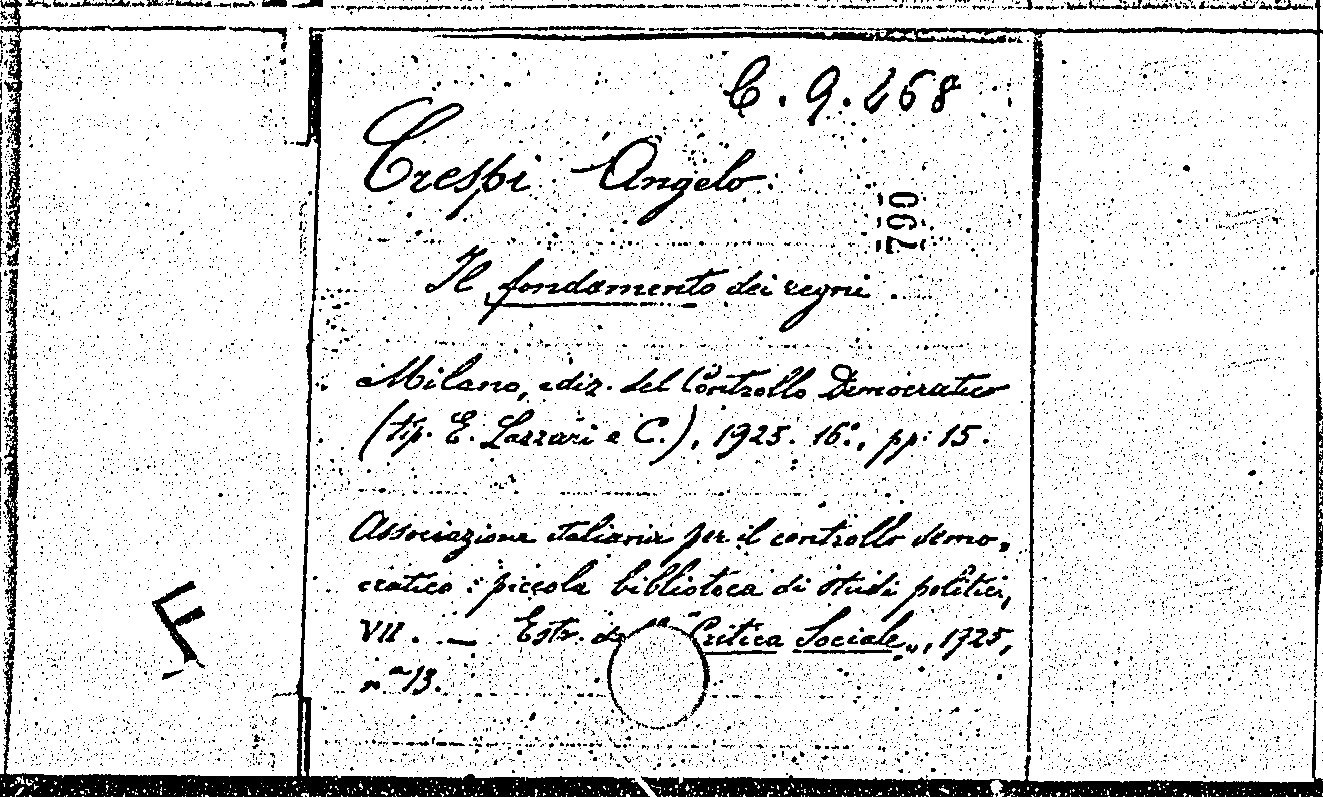 C. 9. 268
Crespi Angelo.
790
Il fondamento dei regni.
Milano, ediz. del Controllo Democratico
(tip. E. Lazzari e C.), 1925. 16°, pp. 15.
Associazione italiana per il controllo demo-
cratico: piccola biblioteca di studi politici,
VII. — Estr. da "Critica Sociale", 1925,
n° 13.
F